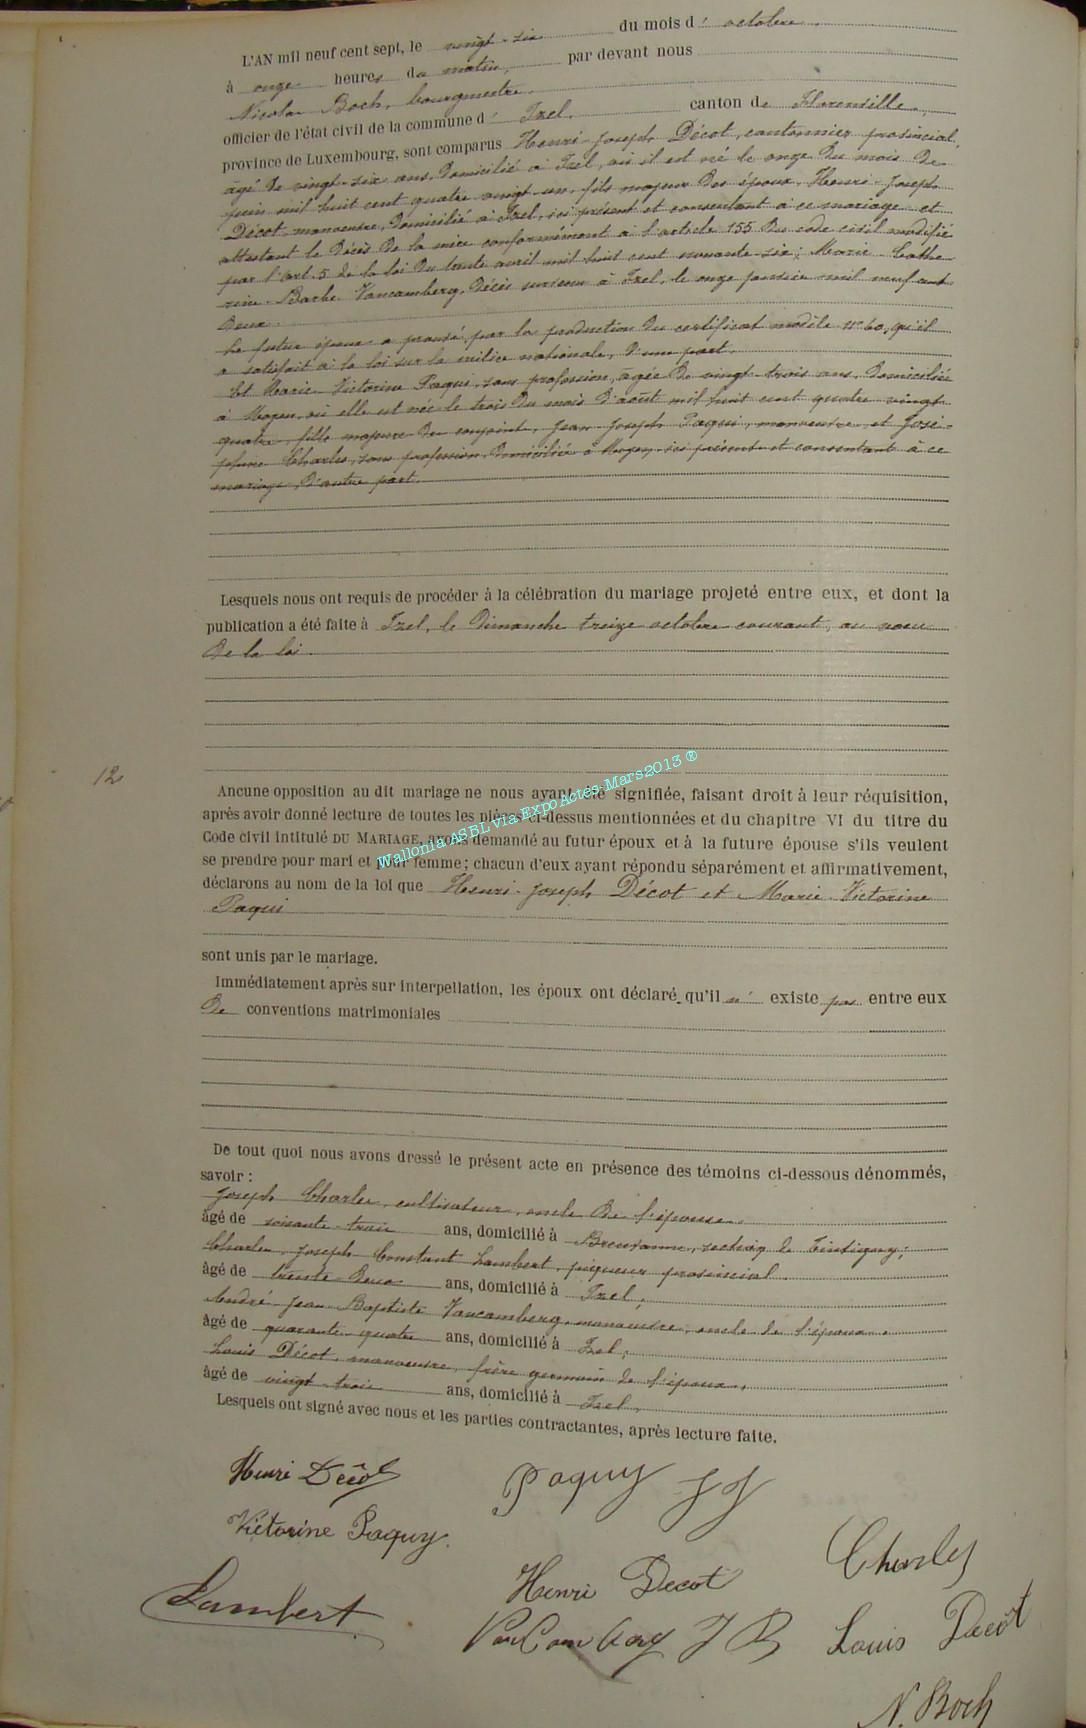 L'AN mil neuf cent sept, le vingt-six du mois d' octobre.
à onze heures du matin, par devant nous
Nicolas Boch, bourgmestre.
officier de l'état civil de la commune d' Izel, canton de Florenville,
province de Luxembourg, sont comparus Henri-Joseph Décot, cantonnier provincial,
âgé de vingt-six ans, domicilié à Izel, où il est né le onze du mois de
juin mil huit cent quatre vingt-un, fils majeur des époux, Henri-Joseph
Décot manoeuvre, domicilié à Izel, ici présent et consentant à ce mariage et
attestant le décès de la mère conformément à l'article 155 du code civil modifié
par l'art. 5 de la loi du trente avril mil huit cent nonante-six; Marie-Cathe-
rine-Barbe Vancamberg, décès survenu à Izel, le onze janvier mil neuf cent
deux.
Le futur époux a prouvé, par la production du certificat modèle n° 60, qu'il
a satisfait à la loi sur la milice nationale, d'une part.
Et Marie-Victorine Paqui, sans profession, âgée de vingt-trois ans, domiciliée
à Moyen, où elle est née le trois du mois d'août mil huit cent quatre vingt-
quatre, fille majeure des conjoints, Jean-Joseph Paqui, manoeuvre, et José-
phine Charles, sans profession, domiciliés à Moyen, ici présents et consentant à ce
mariage, d'autre part.
Lesquels nous ont requis de procéder à la célébration du mariage projeté entre eux, et dont la
publication a été faite à Izel, le Dimanche treize octobre courant, au voeu
de la loi.
12
Aucune opposition au dit mariage ne nous ayant été signifiée, faisant droit à leur réquisition,
après avoir donné lecture de toutes les pièces ci-dessus mentionnées et du chapitre VI du titre du
Code civil intitulé DU MARIAGE, avons demandé au futur époux et à la future épouse s'ils veulent
se prendre pour mari et pour femme; chacun d'eux ayant répondu séparément et affirmativement,
déclarons au nom de la loi que Henri-Joseph Décot et Marie-Victorine
Paqui
Wallonia ASBL via Expo Actes Mars2013 ®
sont unis par le mariage.
Immédiatement après sur interpellation, les époux ont déclaré qu'il n' existe pas entre eux
de conventions matrimoniales
De tout quoi nous avons dressé le présent acte en présence des témoins ci-dessous dénommés,
savoir :
Joseph Charles, cultivateur, oncle de l'épouse,
âgé de soixante-trois ans, domicilié à Breuvanne, section de Tintigny;
Charles-Joseph-Constant Lambert, piqueur provincial
âgé de trente-deux ans, domicilié à Izel;
André-Jean-Baptiste Vancamberg, manoeuvre, oncle de l'époux.
âgé de quarante-quatre ans, domicilié à Izel;
Louis Décot, manoeuvre, frère germain de l'époux,
âgé de vingt-trois ans, domicilié à Izel,
Lesquels ont signé avec nous et les parties contractantes, après lecture faite.
Henri Décot
Paquy JJ
Victorine Paquy.
Charles
Lambert
Henri Decot
VanCamberg J B
Louis Decôt
N. Boch